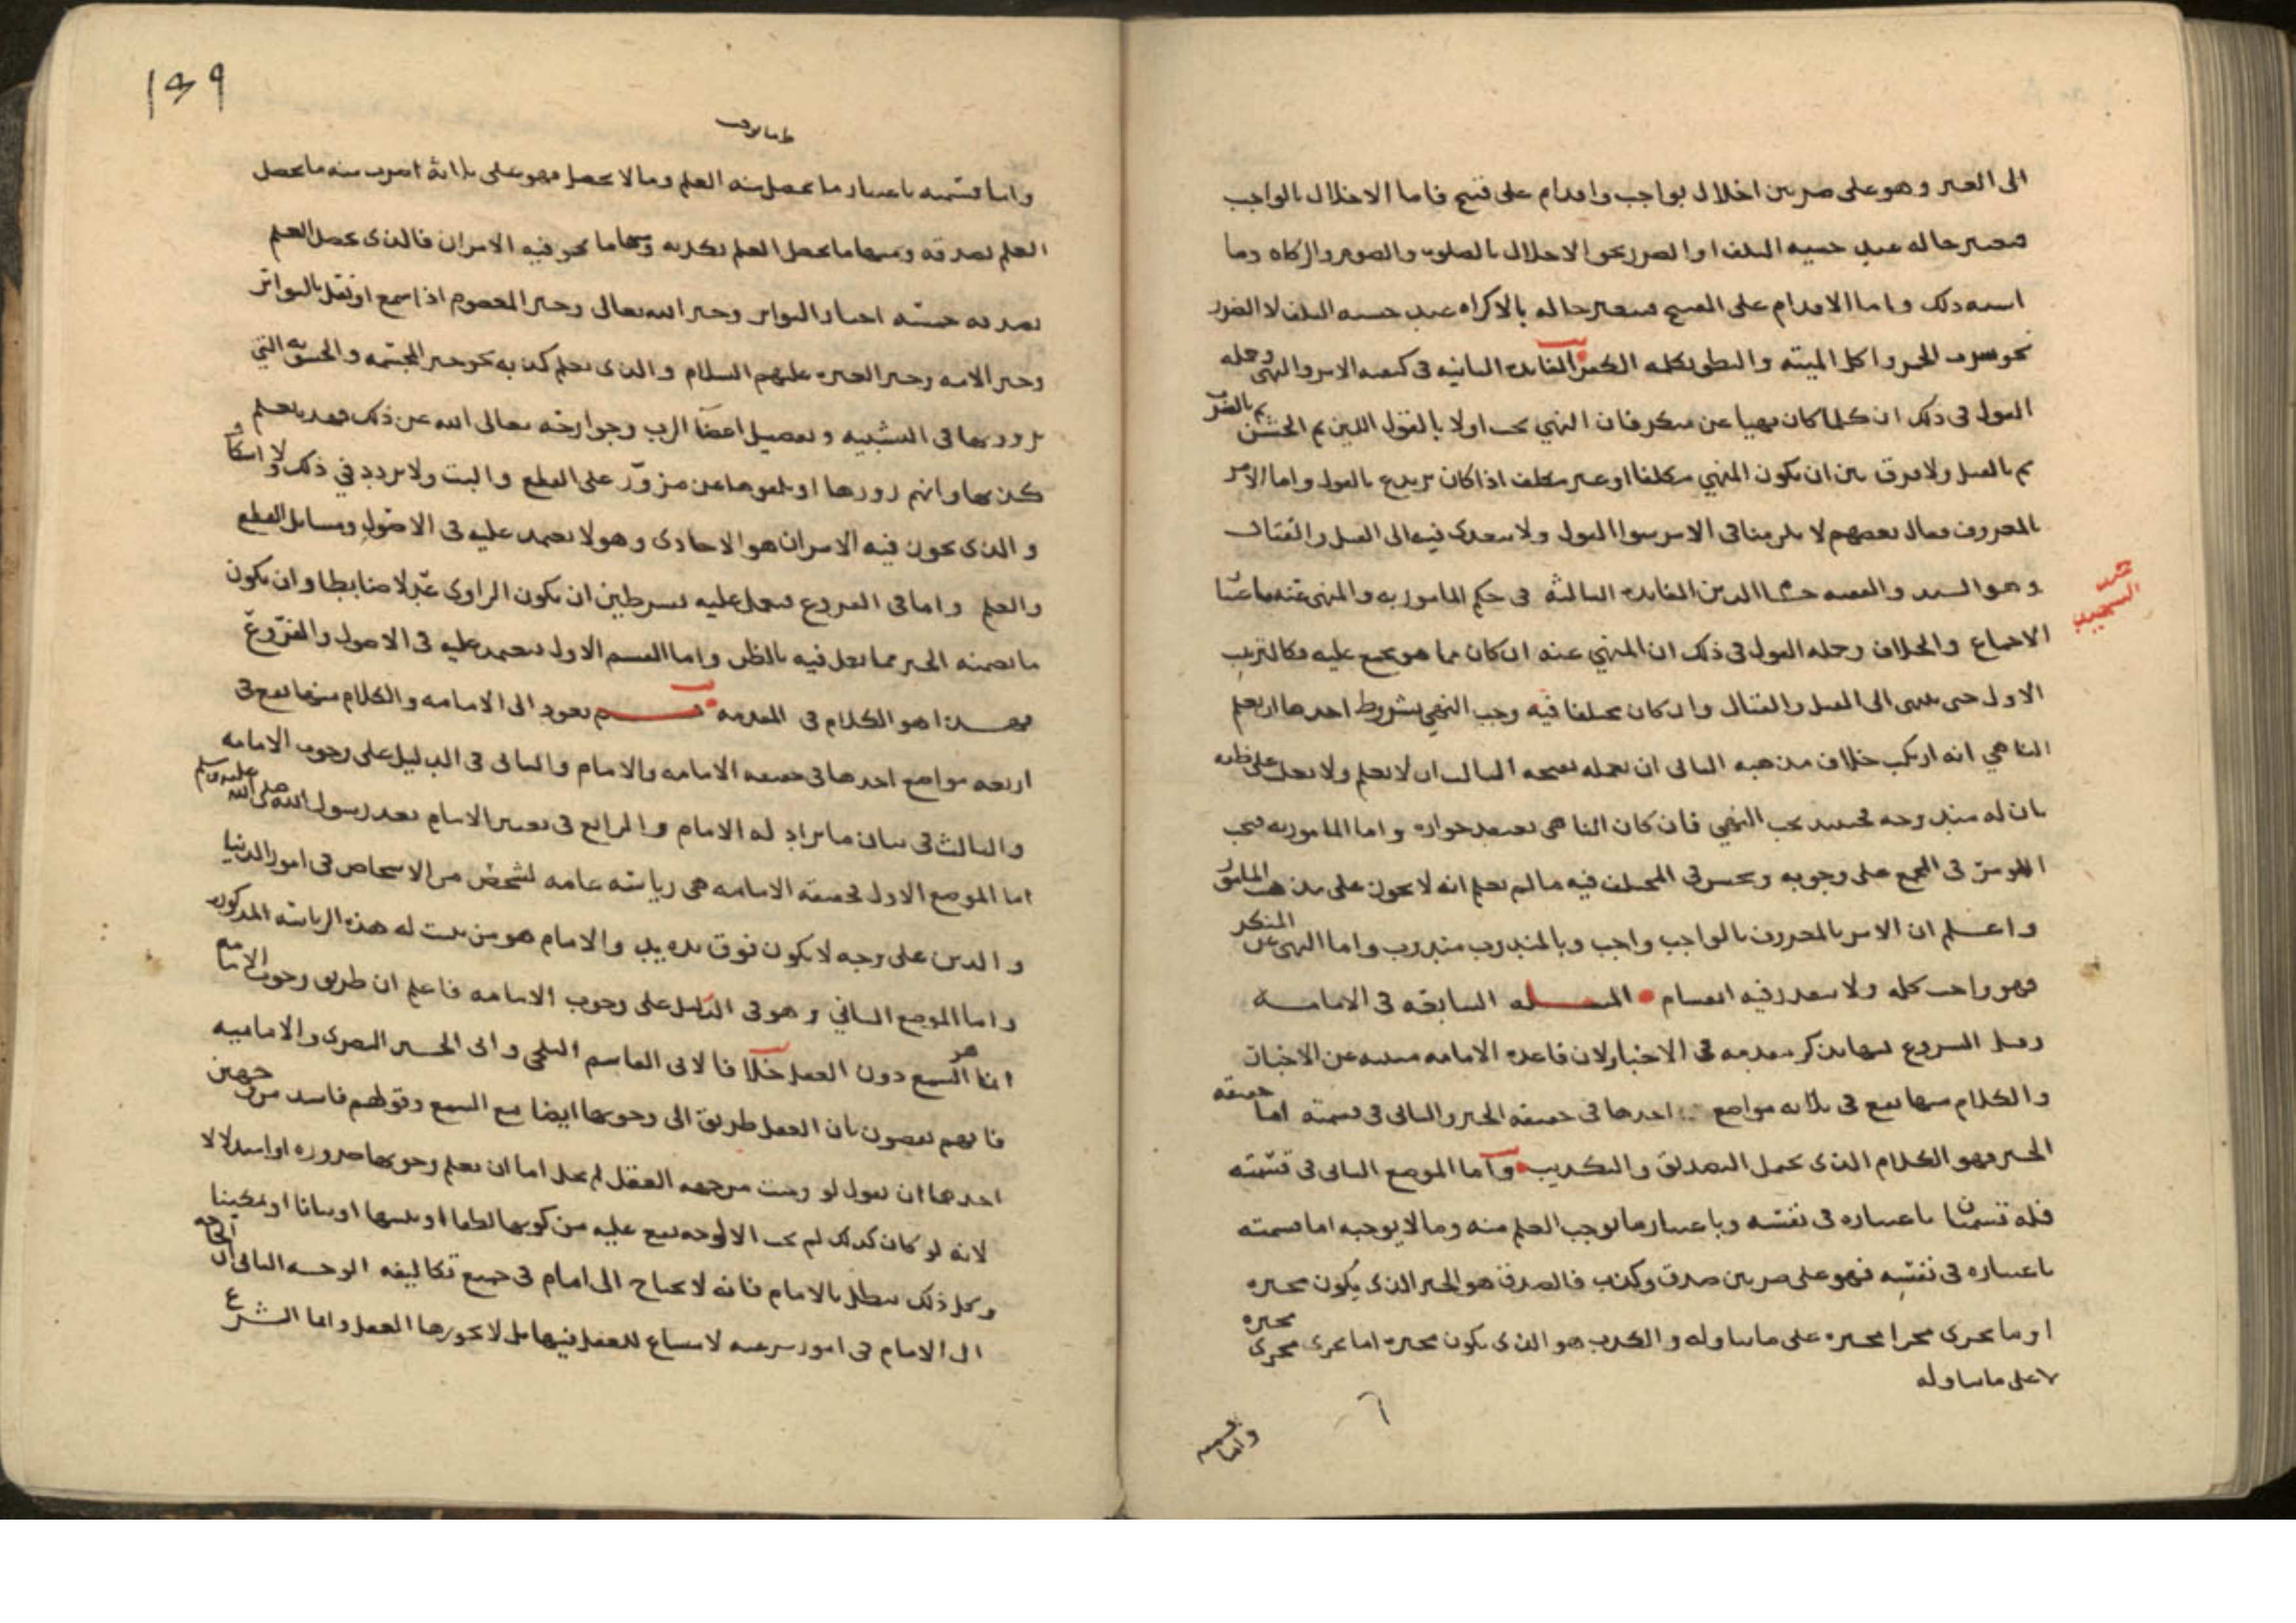 الى الغير وهو على ضربين اخلال بواجب واقدام على قبيح فاما الاخلال بالواجب
فيتغير حاله عند خشيه التلف او الضرر نحو الاخلال بالصلوه والصوم والزكاه وما
اشبه ذلك واما الاقدام على القبيح فيتغير حاله بالاكراه عند خشيه التلف لا الضرر
نحو شرب الخمر واكل الميته والنطق بكلمه الكفر الفايده الثانيه في كيفيه الامر والنهي وجمله
القول في ذلك ان كلما كان نهيا عن منكر فان النهي يجب اولا بالقول اللين ثم الخشن ثم بالضرب
ثم بالقتل ولا فرق بين ان يكون المنهي مكلفا او غير مكلف اذا كان يرتدع بالقول واما الامر
بالمعروف فقال بعضهم لا يلزمنا في الامر سوا القول ولا يتعدى فيه الى القتل والقتال
وهو السيد والفقيه الدين الفايده الثالثه في حكم المامور به والمنهي عنه
الاجماع والخلاف وجمله القول في ذلك ان المنهي عنه ان كان مما هو مجمع عليه فكالترتيب
الاول حتى ينتهي الى القتل والقتال وان كان مختلفا فيه وجب النهي بشروط احدها ان يعلم
الناهي انه ارتكب خلاف مذهبه الثاني ان يعلمه بقبحه الثالث ان لا يعلم ولا يغلب على ظنه
بان له فيه وجه يجب النهي فان كان الناهي يعتقد جوازه واما المامور به فيجب
في المجمع على وجوبه ويحسن في المختلف فيه ما لم يعلم انه لا يجوز على مذهب المامور
واعلم ان الامر بالمعروف بالواجب واجب وبالمندوب مندوب واما النهي عن المنكر
فهو واجب كله ولا يتعذر فيه انقسام المسله السابعه في الامامه
وقبل الشروع فيها نذكر مقدمه في الاخبار لان قاعده الامامه مبنيه عن الاخبار
والكلام منها يقع في ثلاثه مواضع احدها في حقيقه الخبر والثاني في قسمته اما حقيقه
الخبر فهو الكلام الذي يحتمل التصديق والتكذيب واما الموضع الثاني في قسمته
فله قسمتان باعتباره في نفسه وباعتبار ما يوجب العلم منه وما لا يوجبه اما قسمته
باعتباره في نفسه فهو على ضربين صدق وكذب فالصدق هو الخبر الذي يكون مخبره
او ما يجرى مجرا مخبره على ما تناوله والكذب هو الذي يكون مخبره اما يجرى مجرى مخبره
لا على ما تناوله
واما قسمته
محمد
١٣٩
واما قسمته باعتبار ما يحصل منه العلم وما لا يحصل فهو على ثلاثه اضرب منه ما يحصل
العلم بصدقه ومنها ما يحصل العلم بكذبه ومنها ما يجوز فيه الامران فالذي يحصل العلم
بصدقه خمسه اخبار التواتر وخبر الله تعالى وخبر المعصوم اذا سمع او نقل بالتواتر
وخبر الامه وخبر العتره عليهم السلام والذي يعلم كذبه نحو خبر المجسمه والحشويه التي
يروونها في التشبيه وتفصيل اعضا الرب وجوارحه تعالى الله عن ذلك فقد يعلم
كذبها وانهم زوروها او تلقوها عن مزوّر على القطع والبت ولا تردد في ذلك ولا اشكال
والذي يجوز فيه الامران هو الاحادي وهو لا يعتمد عليه في الاصول ومسايل القطع
والعلم واما في الفروع فيعمل عليه بشرطين ان يكون الراوي عدلا ضابطا وان يكون
ما تضمنه الخبر مما يعمل فيه بالظن واما القسم الاول فيعتمد عليه في الاصول والفروع
فهذا هو الكلام في المقدمه ثم نعود الى الامامه والكلام منها يقع في
اربعه مواضع احدها في حقيقه الامامه والامام والثاني في الدليل على وجوب الامامه
والثالث في بيان ما يراد له الامام والرابع في تعيين الامام بعد رسول الله صلى الله عليه وسلم
اما الموضع الاول فحقيقه الامامه هي رياسه عامه لشخص من الاشخاص في امور الدنيا
والدين على وجه لا يكون فوق يده يد والامام هو من ثبتت له هذه الرياسه المذكوره
واما الموضع الثاني وهو في الدليل على وجوب الامامه فاعلم ان طريق وجوب الامامه
انما هو السمع دون العقل خلافا لابي القاسم البلخي وابي الحسين البصري والاماميه
فانهم يقضون بان العقل طريق الى وجوبها ايضا مع السمع وقولهم فاسد من وجهين
احدها ان نقول لو وجبت من جهه العقل لم يخل اما ان يعلم وجوبها ضروره او استدلالا
لانه لو كان كذلك لم يجب الا لوجه يقع عليه من كونها لطفا او بيانا او تمكينا
وكل ذلك يبطل بالامام فانه لا يحتاج الى امام في جميع تكاليفه الوجه الثاني ان الحاجه
الى الامام في امور شرعيه لا مساغ للعقل فيها بل لا يجوزها العقل وانما الشرع